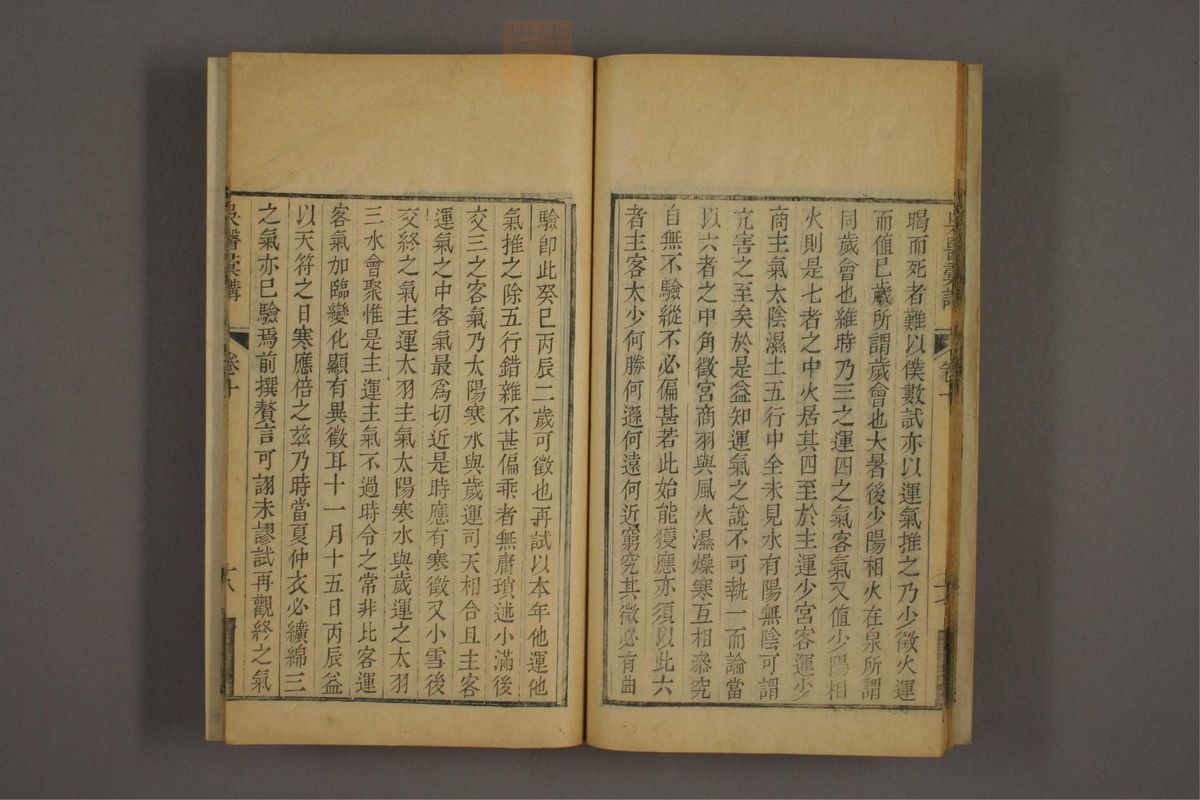 暍而死者難以僕數試亦以運氣推之乃少徵火運
而值巳歲所謂歲會也大暑後少陽相火在泉所謂
同歲會也維時乃三之運四之氣客氣又值少陽相
火則是七者之中火居其四至於主運少宮客運少
商主氣太陰濕土五行中全未見水有陽無陰可謂
亢害之至矣於是益知運氣之說不可執一而論當
以六者之中角徵宮商羽與風火濕燥寒互相叅究
自無不驗縱不必偏甚若此始能獲應亦須以此六
者主客太少何勝何遜何遠何近窮究其微必有曲
驗卽此癸巳丙辰二歲可徵也再試以本年他運他
氣推之除五行錯雜不甚偏乖者無庸瑣述小滿後
交三之客氣乃太陽寒水與歲運司天相合且主客
運氣之中客氣最爲切近是時應有寒徵又小雪後
交終之氣主運太羽主氣太陽寒水與歲運之太羽
三水會聚惟是主運主氣不過時令之常非比客運
客氣加臨變化顯有異徵耳十一月十五日丙辰益
以天符之日寒應倍之兹乃時當夏仲衣必纊綿三
之氣亦巳驗焉前撰贅言可詡未謬試再觀終之氣
吳醫彙講
卷十
十八